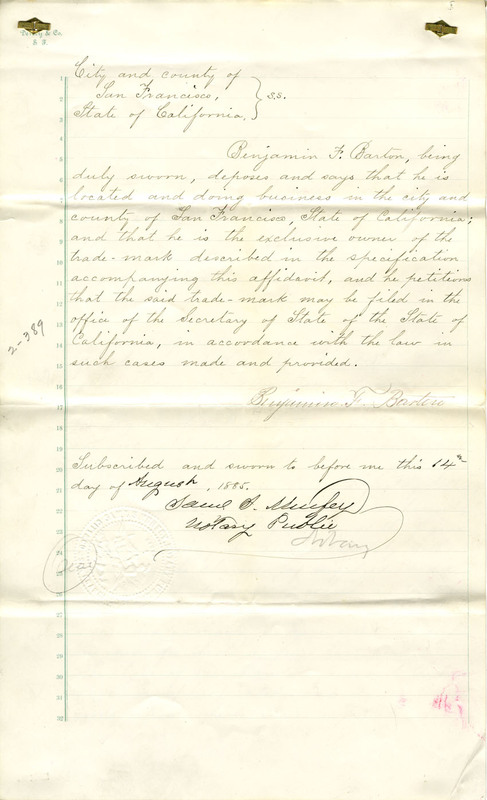 5
City and county of
San Francisco,
State of California.
} ss.
Benjamin F. Barton, being
duly sworn, deposes and says that he is
located and doing business in the city and
county of San Francisco, State of California;
and that he is the exclusive owner of the
trade-mark described in the specification
accompanying this affidavit, and he petitions
that the said trade-mark may be filed in the
office of the Secretary of State of the State of
California, in accordance with the law in
such cases made and provided.
Benjamin F. Barton
Subscribed and sworn to before me this 14th
day of August, 1885.
Notary Public
2-389
1
2
3
4
5
6
7
8
9
10
11
12
13
14
15
16
17
18
19
20
21
22
23
24
25
26
27
28
29
30
31
32